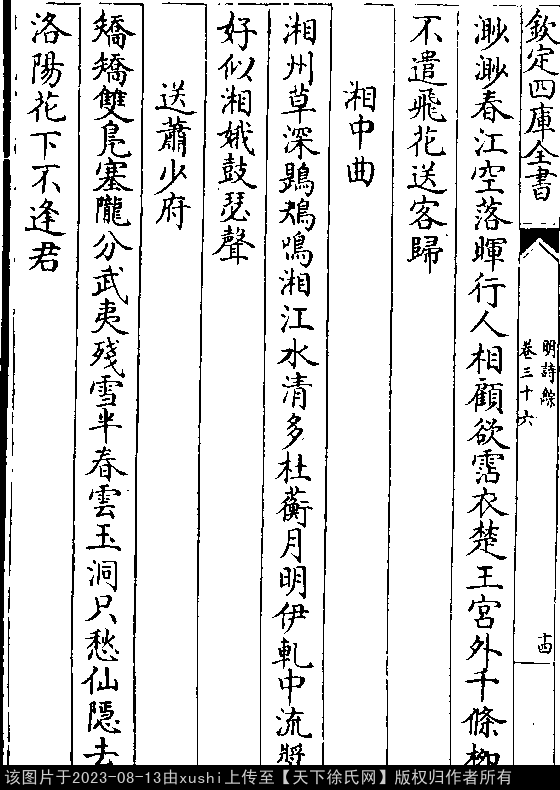 欽定四庫全書
明詩綜
卷三十六
十四
渺渺春江空落暉行人相顧欲霑衣楚王宮外千條柳
不遣飛花送客歸
湘中曲
湘州草深鷓鴣鳴湘江水清多杜蘅月明伊軋中流槳
好似湘娥鼓瑟聲
送蕭少府
矯矯雙鳧塞隴分武夷殘雪半春雲玉洞只愁仙隱去
洛陽花下不逢君
该图片于2023-08-13由xushi上传至【天下徐氏网】版权归作者所有